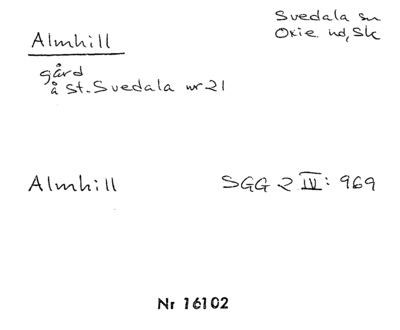 Almhill
Svedala sn
Oxie hd, Sk
gård
å St. Svedala nr 21
Almhill
SGG 2 IV: 969
Nr 16102